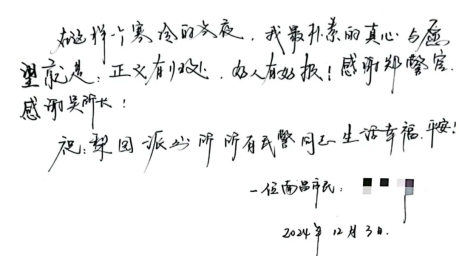 在这样个寒冷的冬夜，我最朴素的真心与愿
望就是：正义有归处，好人有好报！感谢郑警官，
感谢吴所长！
祝：梨园派出所所有民警同志生活幸福.平安！
一位南昌市民：
2024年12月3日.